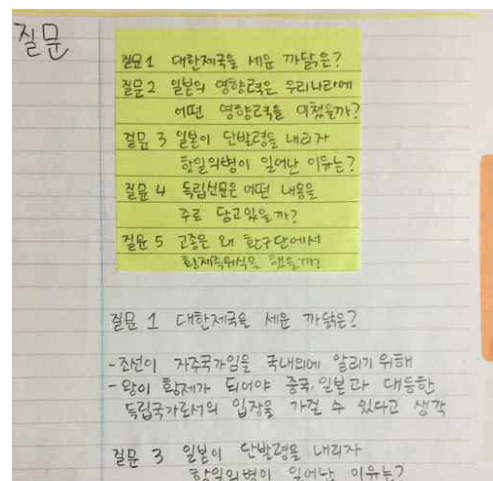 질문
질문1 대한제국을 세운 까닭은?
질문2 일본의 영향력은 우리나라에
어떤 영향력을 미쳤을까?
질문 3 일본이 단발령을 내리자
항일의병이 일어난 이유는?
질문 4 독립신문은 어떤 내용을
주로 담고있을까?
질문 5 고종은 왜 환구단에서
황제즉위식을 했을까?
질문 1 대한제국을 세운 까닭은?
-조선이 자주국가임을 국내외에 알리기 위해
-왕이 황제가 되어야 중국, 일본과 대등한
독립국가로서의 입장을 가질 수 있다고 생각
질문 3 일본이 단발령을 내리자
항일의병이 일어난 이유는?